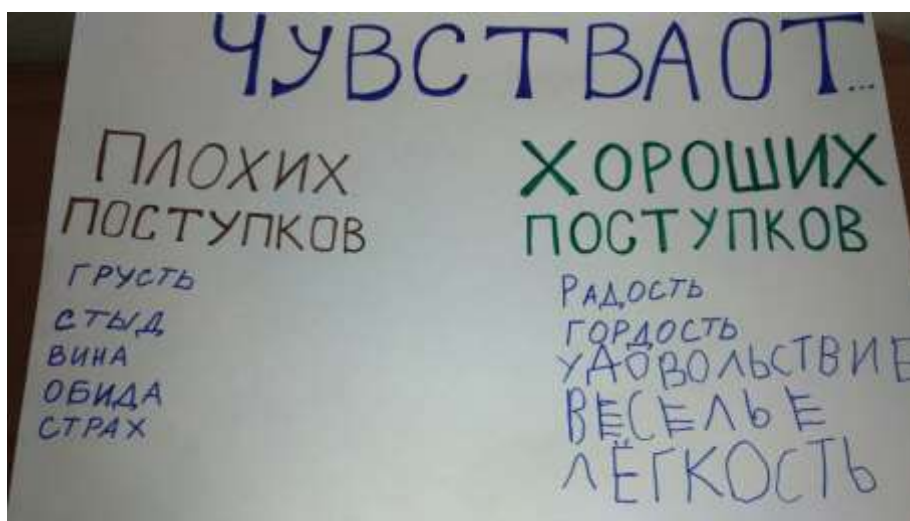 ЧУВСТВА ОТ...
ПЛОХИХ
ПОСТУПКОВ
ГРУСТЬ
СТЫД
ВИНА
ОБИДА
СТРАХ
ХОРОШИХ
ПОСТУПКОВ
РАДОСТЬ
ГОРДОСТЬ
УДОВОЛЬСТВИЕ
ВЕСЕЛЬЕ
ЛЁГКОСТЬ